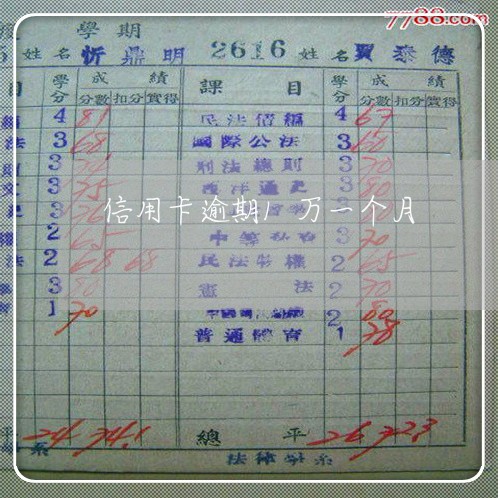 7788.com
學期
姓名 忻鼎明 2616 姓名 賈泰德
目 學分 成績 課目 學分 成績
分數 扣分 實得 分數 扣分 實得
4 81 民法債編 4 67
法 3 68 國際公法 3 60
3 刑法總則 3 70
3 75 西洋通史 3 80
3 3
信用卡逾期1万一个月
2 65 3 70
法 2 68 68 民法物權 2 65
3 80 憲法 2 70
1 70 2 80
普通體育 1 78
平 24 74.1 總平 26 72.3
系 法律學系